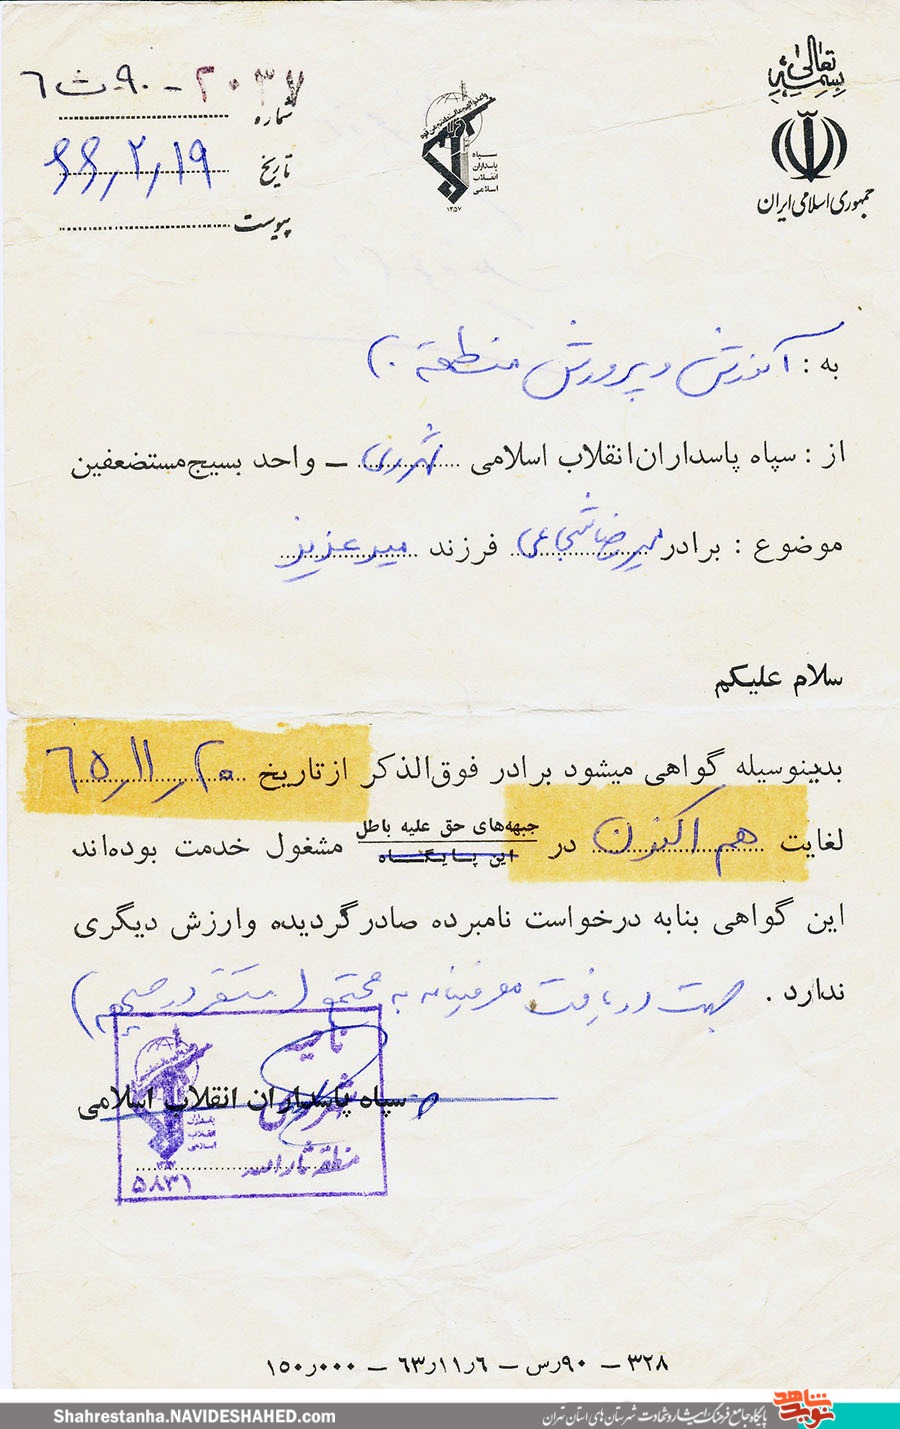 بسمه تعالی
جمهوری اسلامی ایران
سپاه
پاسداران
انقلاب
اسلامی
۱۳۵۷
شماره ۲۰۳۷ - ۹۰ - ث ٦
تاریخ ۶۶٫۲٫۱۹
پیوست
به : آموزش و پرورش منطقه
از : سپاه پاسداران انقلاب اسلامی شهرری - واحد بسیج مستضعفین
موضوع : برادر میررضا شجاعی فرزند میرعزیز
سلام علیکم
بدینوسیله گواهی میشود برادر فوق‌الذکر از تاریخ ۲۰٫۱۱٫٦۵
لغایت هم اکنون در جبهه‌های حق علیه باطل این پایگاه مشغول خدمت بوده‌اند
این گواهی بنابه درخواست نامبرده صادر گردیده و ارزش دیگری
ندارد . جهت دریافت معرفینامه به مجتمع (مستقر در
سپاه پاسداران انقلاب اسلامی
ناحیه
شهرری
منطقه ثارالله
پاسداران
انقلاب
اسلامی
۵۸۳۱
۳۲۸ - ۹۰رس - ۶ر۱۱ر۶۳ - ۱۵۰ر۰۰۰
Shahrestanha.NAVIDESHAHED.com
پایگاه جامع فرهنگ ایثار و شهادت شهرستان های استان تهران
نوید شاهد